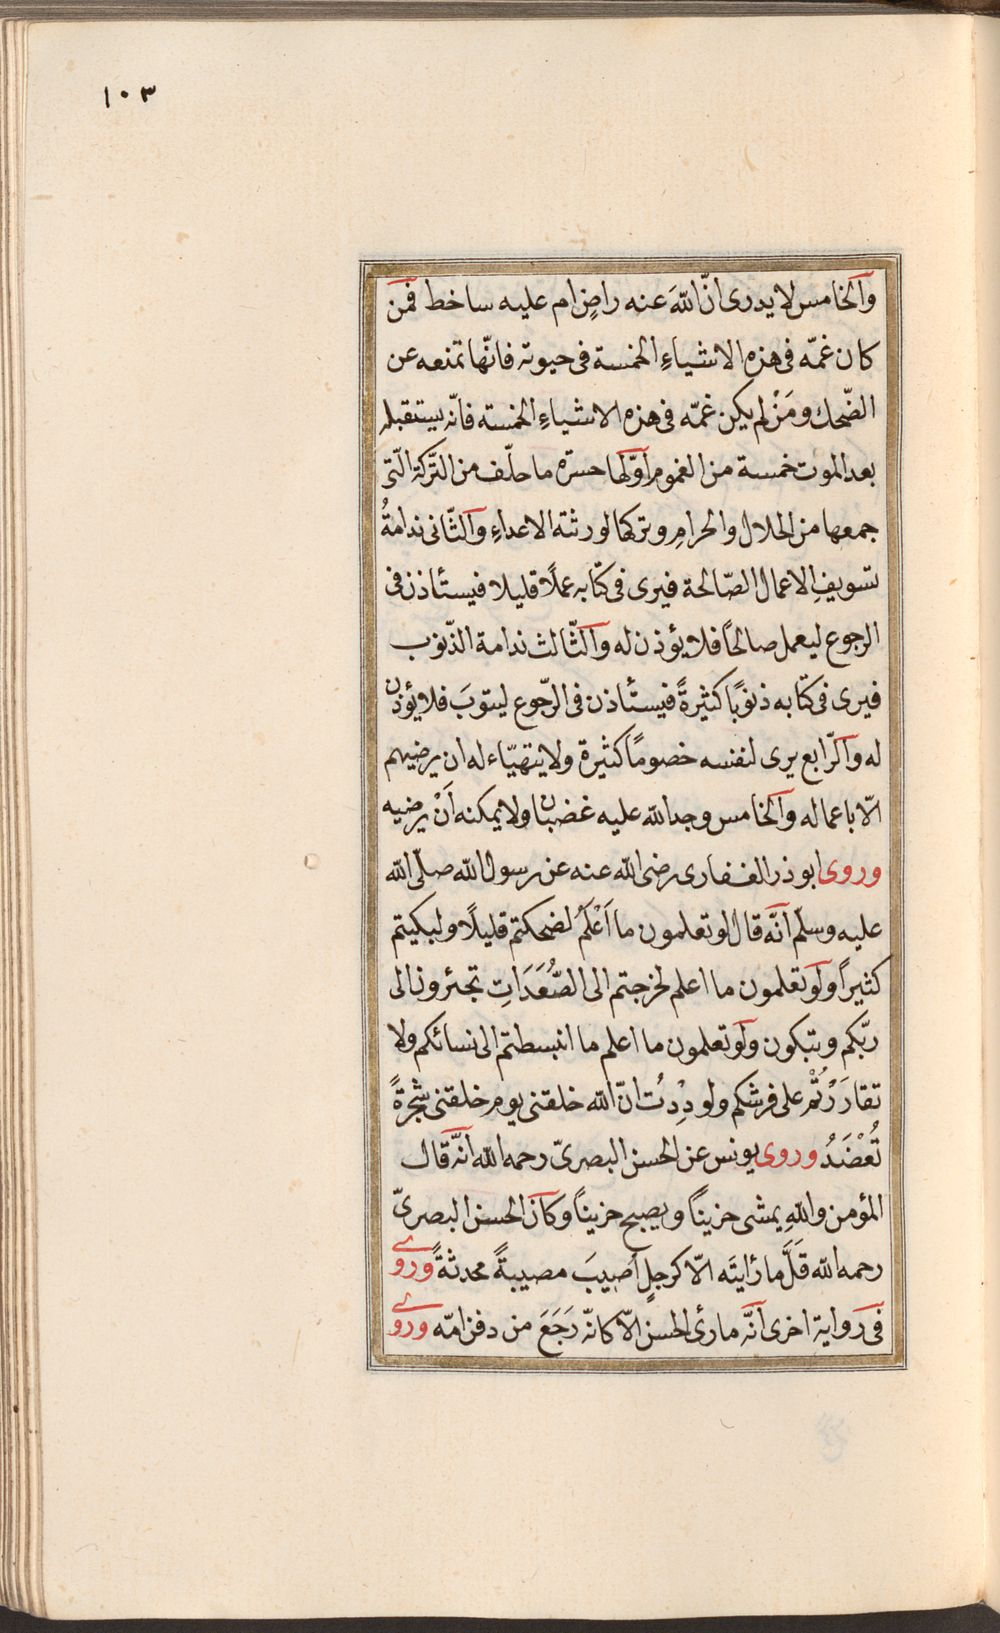 ١٠٣
والخامس لا يدرى انّ اللّٰهَ عنه راضٍ ام عليه ساخط فمن
كان غمّه فى هذه الاشياءِ الخمسة فى حيوته فانّها تمنعه عن
الضّحك ومَنْ لم يكن غمّه فى هذه الاشياءِ الخمسته فانّه يستقبله
بعد الموت خمسة من الغموم اوّلها حسرّه ما حلّف من التّركة الّتى
جمعها من الحلال والحرامِ وتركها لورثته الاعداءِ والثّانى ندامةُ
تسويفِ الاعمال الصّالحة فيرى فى كتابه عملًا قليلا فيستأذن فى
الرجوع ليعمل صالحًا فلا يؤذن له والثّالث ندامة الذّنوب
فيرى فى كتابه ذنوبًا كثيرةً فيستأذن فى الرّجوع ليتوبَ فلا يؤذن
له والرّابع يرى لنفسه خصومًا كثيرة ولا يتهيّاء له ان يرضيهم
الّا باعماله والخامس وجد اللّٰه عليه غضبان ولا يمكنه اَنْ يرضيه
وروى ابوذر الغفارى رضى اللّٰه عنه عن رسول اللّٰه صلّى اللّٰه
عليه وسلّم انّه قال لو تعلمون ما اَعْلَمُ لضحكتم قليلًا ولبكيتم
كثيرًا ولو تعلمون ما اعلم لخرجتم الى الصُّعَدَاتِ تجئرون الى
ربّكم وتبكون ولو تعلمون ما اعلم ما انبسطتم الى نسائكم ولا
تقارَرْتُمْ على فرشكم ولودِدْتُ انّ اللّٰه خلقنى يوم خلقنى شجرةً
تُعْضَدُ وروى يونس عن الحسن البصرىّ رحمه اللّٰه انّه قال
المؤمن واللّٰهِ يمشى حزينًا ويصبح حزينًا وكان الحسن البصرىّ
رحمه اللّٰه قَلَّ ما رأيتَه الّا كرجلٍ اُصيبَ مصيبةً محدثةً وروى
فى رواية اخرى انّه ما رأى الحسن الّا كانّه رَجَعَ من دفن امّه وروى